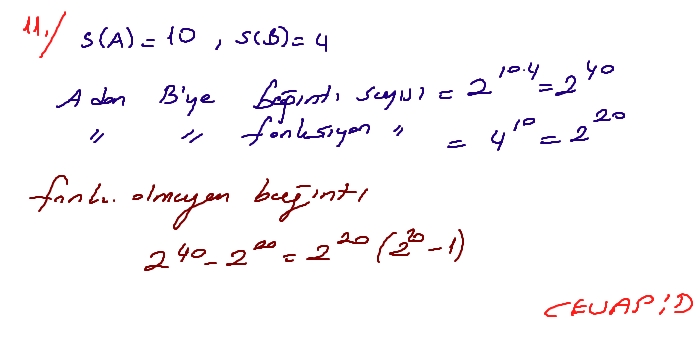 11.) S(A) = 10 , S(B) = 4
A dan B'ye bağıntı sayısı = 2^10.4 = 2^40
" " fonksiyon " = 4^10 = 2^20
fonk. olmayan bağıntı
2^40 - 2^20 = 2^20 (2^20 - 1)
CEVAP: D